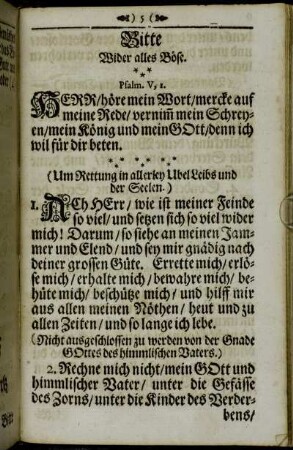 5
Bitte
Wider alles Böse.
Psalm. V, 1.
HERR/höre mein Wort/mercke auf
meine Rede/ vernim̃ mein Schrey-
en/mein König und mein GOtt/denn ich
wil für dir beten.
(Um Rettung in allerley Ubel Leibs und
der Seelen.)
1. ACh HErr/ wie ist meiner Feinde
so viel/und setzen sich so viel wider
mich! Darum/ so siehe an meinen Jam-
mer und Elend/ und sey mir gnädig nach
deiner grossen Güte. Errette mich/ erlö-
se mich/ erhalte mich/ bewahre mich/ be-
hüte mich/ beschütze mich/ und hilff mir
aus allen meinen Nöthen/ heut und zu
allen Zeiten/ und so lange ich lebe.
(Nicht ausgeschlossen zu werden von der Gnade
GOttes des himmlischen Vaters.)
2. Rechne mich nicht/mein GOtt und
himmlischer Vater/ unter die Gefässe
des Zorns/unter die Kinder des Verder-
bens/